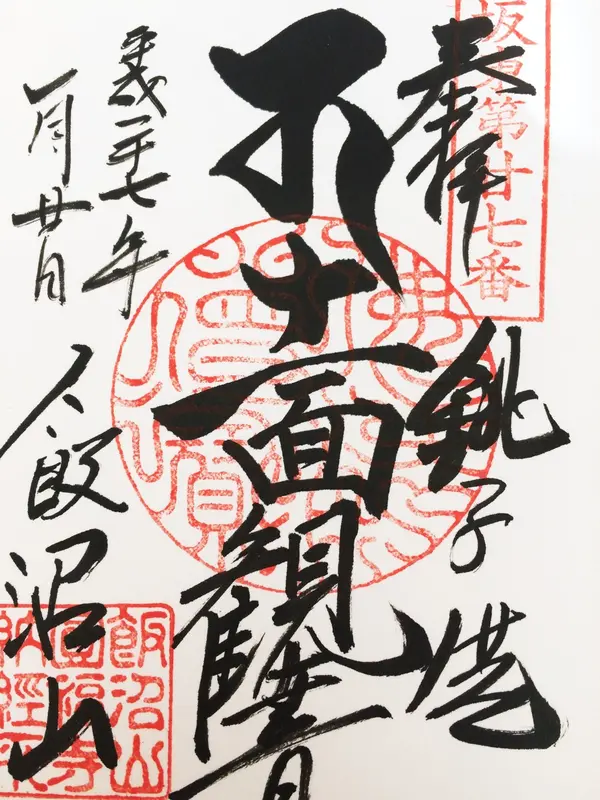 坂東第廿七番
奉拝
銚子港
十一面観世音
平成二十七年
一月廿日
飯沼山
飯沼山
圓福寺
納経